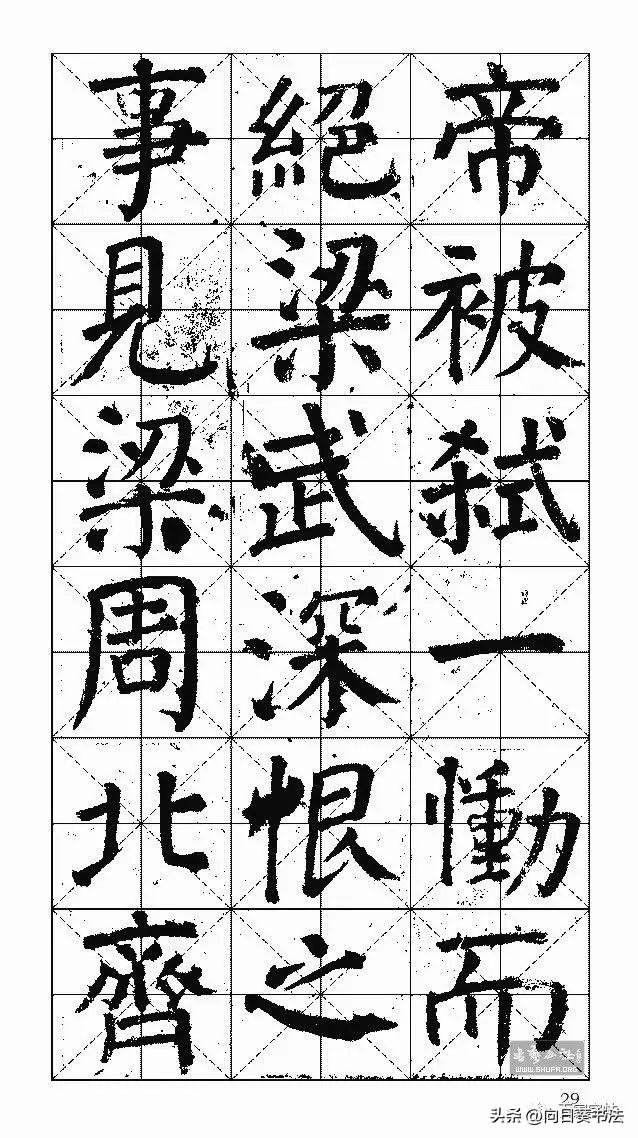 帝被弑一慟而
絶梁武深恨之
事見梁周北齊
WWW.SHUPR.ORG
29
头条 @向日葵书法